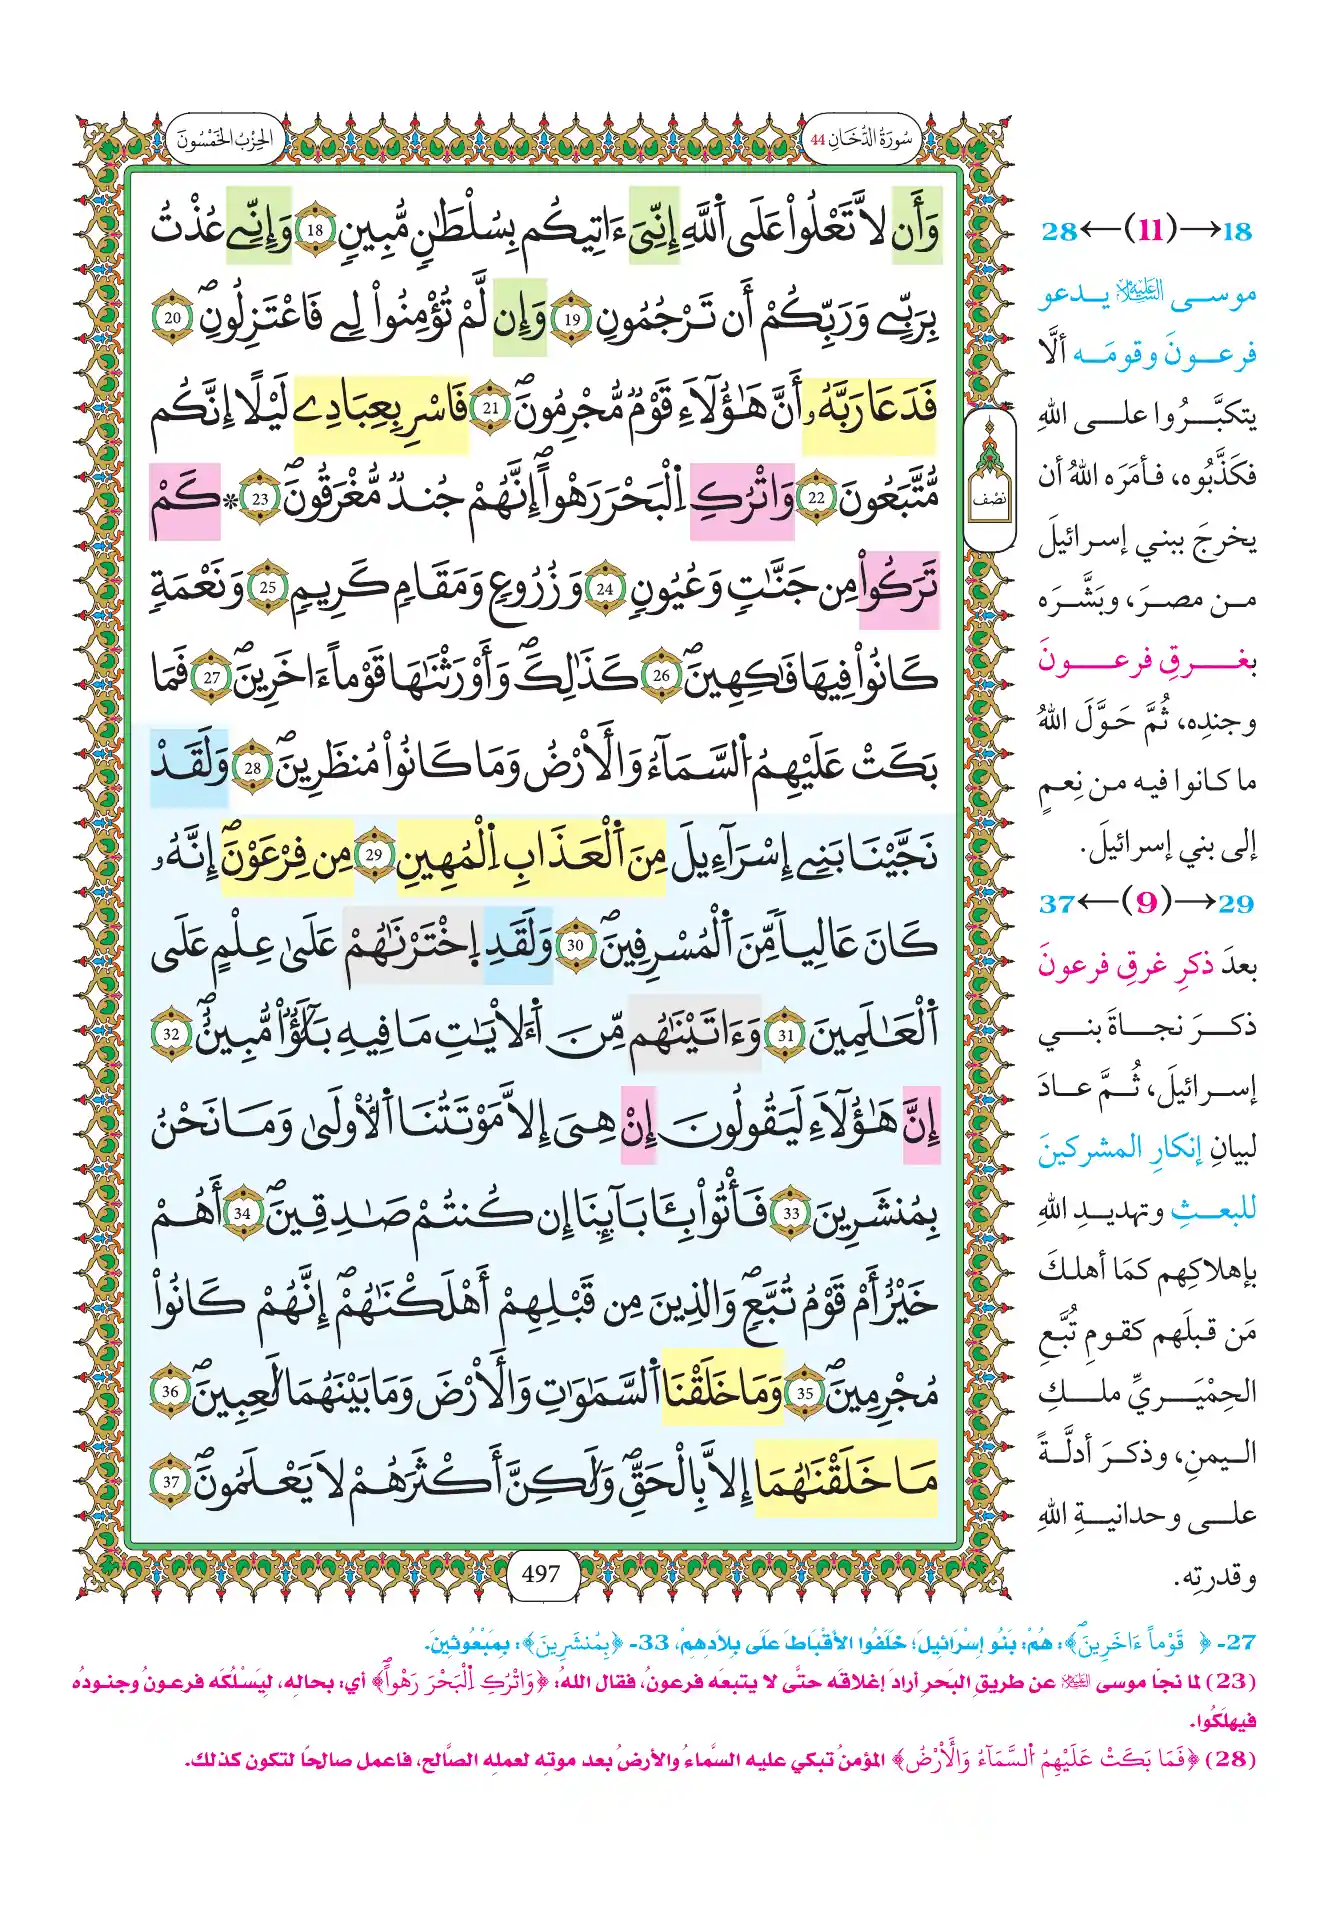 سُورَةُ الدُّخَانِ 44
الحِزْبُ الخَمْسُونَ
وَأَن لَّا تَعْلُواْ عَلَى اَ۬للَّهِ إِنِّيَ ءَاتِيكُم بِسُلْطَٰنٖ مُّبِينٖ 18 وَإِنِّے عُذْتُ
بِرَبِّے وَرَبِّكُمْ أَن تَرْجُمُونِ 19 وَإِن لَّمْ تُؤْمِنُواْ لِے فَاعْتَزِلُونِۖ 20
فَدَعَا رَبَّهُۥ أَنَّ هَٰٓؤُلَآءِ قَوْمٞ مُّجْرِمُونَۖ 21 فَاسْرِ بِعِبَادِے لَيْلًا اِنَّكُم
مُّتَّبَعُونَ 22 وَاتْرُكِ اِ۬لْبَحْرَ رَهْواًۖ اِنَّهُمْ جُندٞ مُّغْرَقُونَۖ 23 * كَمْ
تَرَكُواْ مِن جَنَّٰتٖ وَعُيُونٖ 24 وَزُرُوعٖ وَمَقَامٖ كَرِيمٖ 25 وَنَعْمَةٖ
كَانُواْ فِيهَا فَٰكِهِينَۖ 26 كَذَٰلِكَۖ وَأَوْرَثْنَٰهَا قَوْماً ءَاخَرِينَۖ 27 فَمَا
بَكَتْ عَلَيْهِمُ اُ۬لسَّمَآءُ وَالَارْضُ وَمَا كَانُواْ مُنظَرِينَۖ 28 وَلَقَدْ
نَجَّيْنَا بَنِے إِسْرَآءِيلَ مِنَ اَ۬لْعَذَابِ اِ۬لْمُهِينِ 29 مِن فِرْعَوْنَۖ إِنَّهُۥ
كَانَ عَالِياٗ مِّنَ اَ۬لْمُسْرِفِينَۖ 30 وَلَقَدِ اِ۪خْتَرْنَٰهُمْ عَلَىٰ عِلْمٍ عَلَى
اَ۬لْعَٰلَمِينَ 31 وَءَاتَيْنَٰهُم مِّنَ اَ۬لَايَٰتِ مَا فِيهِ بَلَٰٓؤٞاْ مُّبِينٌۖ 32
إِنَّ هَٰٓؤُلَآءِ لَيَقُولُونَ إِنْ هِيَ إِلَّا مَوْتَتُنَا اَ۬لُاولَىٰ وَمَا نَحْنُ
بِمُنشَرِينَ 33 فَاتُواْ بِـَٔابَآئِنَا إِن كُنتُمْ صَٰدِقِينَۖ 34 أَهُمْ
خَيْرٌ اَمْ قَوْمُ تُبَّعٖۖ وَالذِينَ مِن قَبْلِهِمْ أَهْلَكْنَٰهُمْۖ إِنَّهُمْ كَانُواْ
مُجْرِمِينَۖ 35 وَمَا خَلَقْنَا اَ۬لسَّمَٰوَٰتِ وَالَارْضَ وَمَا بَيْنَهُمَا لَٰعِبِينَۖ 36
مَا خَلَقْنَٰهُمَا إِلَّا بِالْحَقِّۖ وَلَٰكِنَّ أَكْثَرَهُمْ لَا يَعْلَمُونَۖ 37
نصْف
497
18→(11)←28
موسى عَلَيْهِ السَّلَام يدعو
فرعونَ وقومَه ألَّا
يتكبَّرُوا على اللهِ
فكَذَّبُوه، فأمَرَه اللهُ أن
يخرجَ ببني إسرائيلَ
من مصرَ، وبَشَّرَه
بغرقِ فرعونَ
وجندِه، ثُمَّ حَوَّلَ اللهُ
ما كانوا فيه من نِعمٍ
إلى بني إسرائيلَ.
29→(9)←37
بعدَ ذكرِ غرقِ فرعونَ
ذكرَ نجاةَ بني
إسرائيلَ، ثُمَّ عادَ
لبيانِ إنكارِ المشركينَ
للبعثِ وتهديدِ اللهِ
بإهلاكِهم كمَا أهلكَ
مَن قبلَهم كقومِ تُبَّعٍ
الحِمْيَريِّ ملكِ
اليمنِ، وذكرَ أدلَّةً
على وحدانيةِ اللهِ
وقدرتِه.
27- ﴿ قَوْماً ءَاخَرِينَۖ﴾: هُمْ: بَنُو إِسْرَائِيلَ؛ خَلَفُوا الأَقْبَاطَ عَلَى بِلَادِهِمْ، 33- ﴿بِمُنشَرِينَ﴾: بِمَبْعُوثِينَ.
(23) لما نجا موسى عَلَيْهِ السَّلَام عن طريقِ البَحرِ أرادَ إغلاقَه حتَّى لا يتبعَه فرعونُ، فقال اللهُ: ﴿وَاتْرُكِ اِ۬لْبَحْرَ رَهْواًۖ﴾ أي: بحاله، ليَسْلُكَه فرعونُ وجنودُه
فيهلَكُوا.
(28) ﴿فَمَا بَكَتْ عَلَيْهِمُ اُ۬لسَّمَآءُ وَالَارْضُ﴾ المؤمنُ تبكي عليه السَّماءُ والأرضُ بعد موتِه لعملِه الصَّالح، فاعمل صالحًا لتكون كذلك.